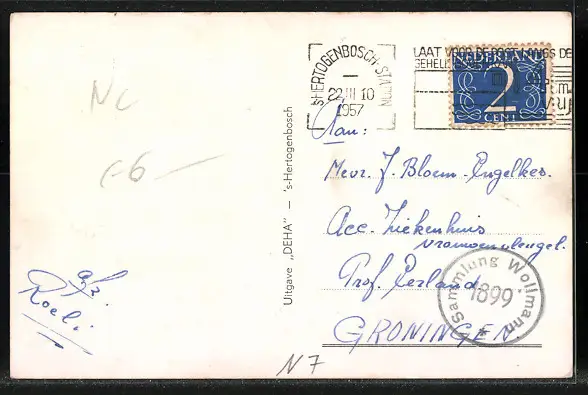 's-HERTOGENBOSCH-STATION
22.III 10
1957
LAAT VOOR DE POST LANGS DE
GEHEI
NEDERLAND
2
CENT
Aan:
Mevr. J. Bloem-Engelkes.
Acc. Ziekenhuis
vrouwenvleugel.
Prof.
GRONINGEN
Sammlung Wollmann
1899
Uitgave „DEHA" — 's-Hertogenbosch
NC
-6 —
afz.
Roeli
N7